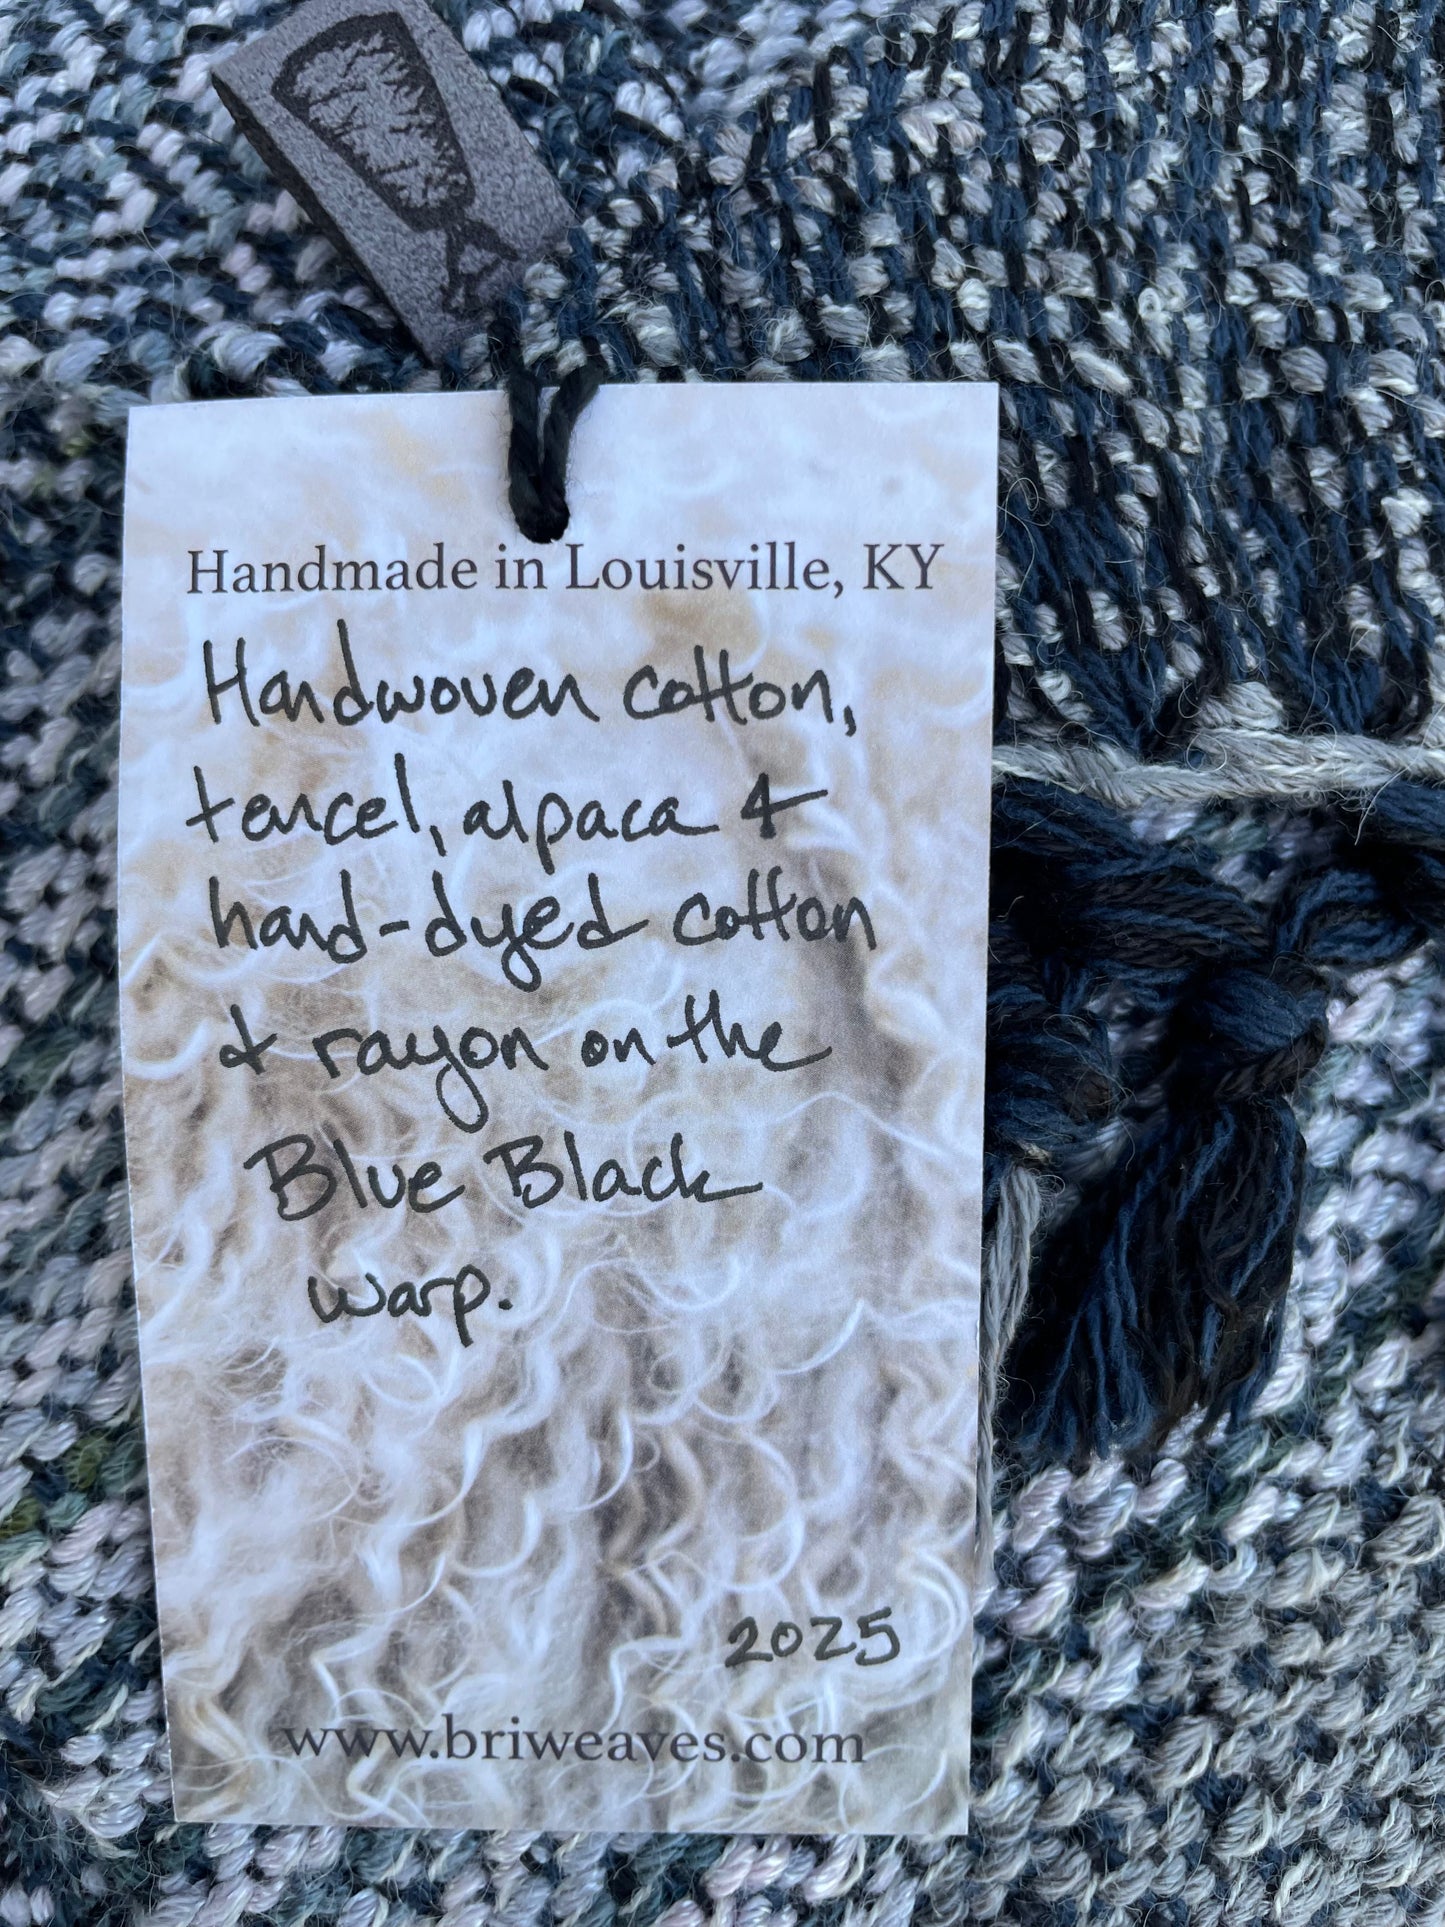 Handmade in Louisville, KY
Handwoven cotton,
tencel, alpaca &
hand-dyed cotton
& rayon on the
Blue Black
warp.
2025
www.briweaves.com